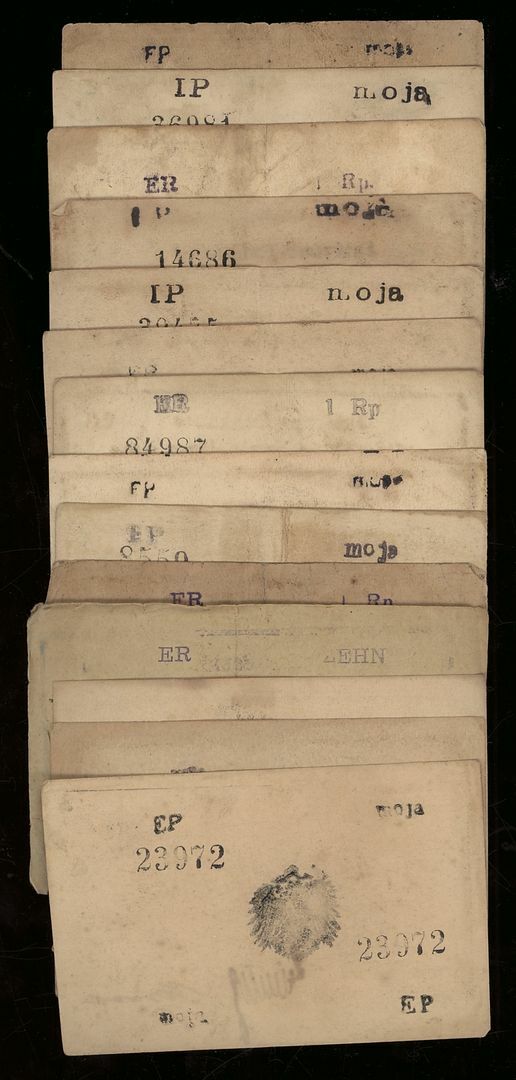 EP moja
IP moja
36981
ER 1 Rp.
IP moja
14686
IP moja
EP moja
ER 1 Rp
84987
EP moja
EP moja
8550
ER 1 Rp
ER ZEHN
EP moja
23972
23972
moja EP